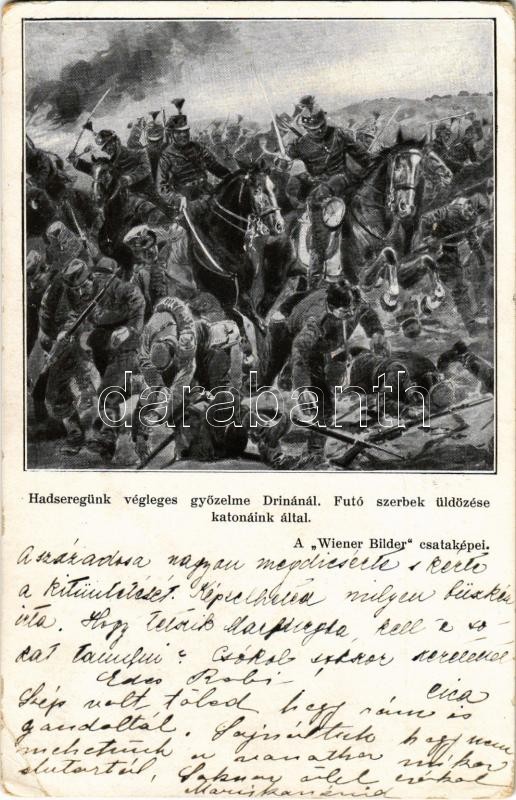 darabanth
Hadseregünk végleges győzelme Drinánál. Futó szerbek üldözése
katonáink által.
A „Wiener Bilder“ csataképei.
A százados nagyon megdicsérte s kérte
a kitüntetését. Képzelheted milyen büszkén
írta. Hogy tetszik Marburgba, kell e so-
kat tanulni? Csókol sokszor szeretettel
Cica
Édes Robi
Szép volt tőled hogy rám is
gondoltál. Sajnáltuk hogy nem
mehettünk a vonathoz mikor
elutaztál, Sokszor ölel csókol
Mariskanénid